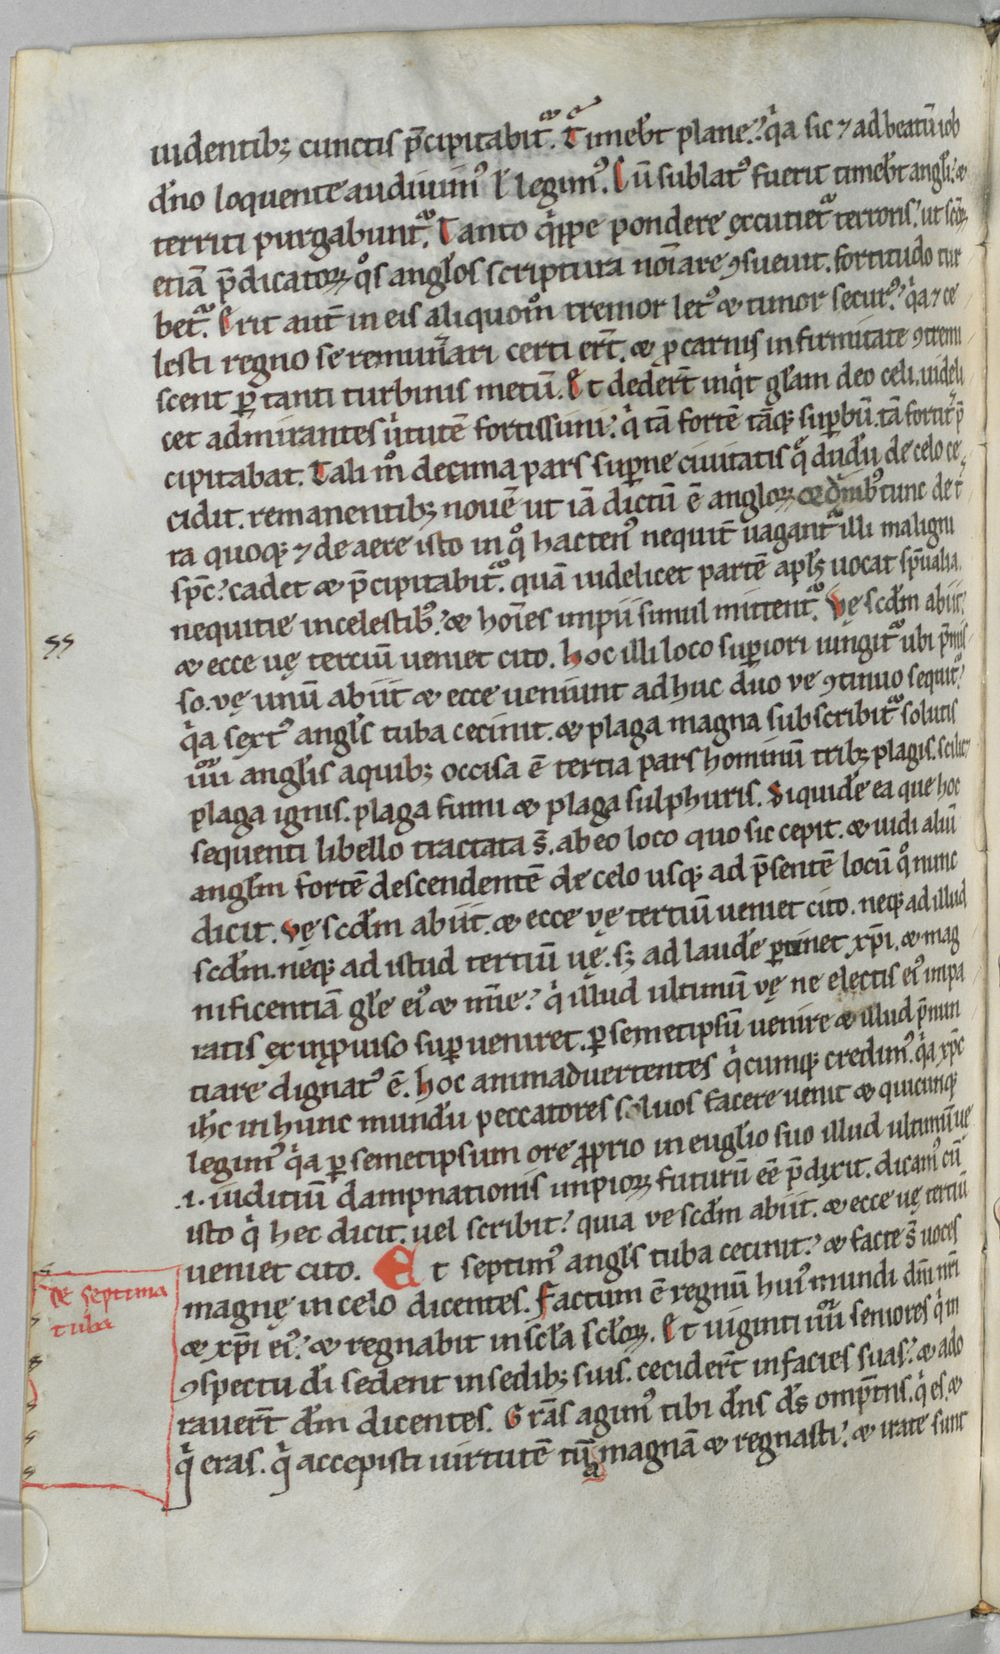 uidentib; cunctis p̄cipitabit᷑. Tim̄ebt plane? qͥa sic ⁊ ad beatū iob
dn̄o loquente audiuim᷒ ł legim᷒. Cū sublat᷒ fuerit timebt angłi? &
territi purgabunt᷑. Tanto qͥppe pondere excutiet᷑ terroris? ut scōꝝ
etiā p̄dicatoꝝ qͦs angłos scriptura noīare ꝯsueuit. fortitudo tur
bet᷑. Erit aut̄ in eis aliquom̊ tremor let᷒ & timor securͦ? qͥa ⁊ ce
lesti regno se remun̄ari certi ert̄. & p carnis infirmitate ꝯtremi
scent ꝑ tanti turbinis metū. Et dedert̄ inqͥt głam deo celi. uideli
cet admirantes uͥtutē fortissimi? qͥ tā fortē tāq; suꝑbū. tā fortit᷑ p̄
cipitabat. Tali m̊ decima pars suꝑne ciuitatis q̄ dudū de celo ce
cidit. remanentib; nouē ut iā dictū ē angloꝝ ordinib᷒ tunc de t̄
ra quoq; ⁊ de aere isto in qͦ hacten᷒ nequit̄ uagant᷑ illi maligni
spc̄? cadet & p̄cipitabit᷑. quam uidelicet partē apłs uocat spūalia
nequitie in celestib᷒? & hoīes impii simul mittent᷑. Vę scdm abiit?
& ecce uę terciū ueniet cito. hoc illi loco suꝑiori iungit᷑ ubi p̄mis
so. vę unū abiit & ecce ueniunt adhuc duo ve ꝯtinuo sequit᷑?
qͥa sext᷒ angłs tuba cecinit. & plaga magna subscribit᷑ solutis
iiiiͦʳ angłis a quib; occisa ē tertia pars hominū trib; plagis. scilic&
plaga ignis. plaga fumi & plaga sulphuris. Siquidē ea que hoc
sequenti libello tractata s̄. ab eo loco quo sic cepit. & uidi aliū
angłm fortē descendentē de celo usq; ad p̄sentē locū qͦ nunc
dicit. vę scdm abiit. & ecce vę tertiū ueniet cito. neq; ad illud
scdm. neq; ad istud tertiū uę. s; ad laudē ꝑtinet xp̄i. & mag
nificentiā głe ei᷒ & mīe? qͥ illud ultimū vę ne electis ei᷒ impa
ratis ex inꝓuiso suꝑueniret. ꝑ semetipsū uenire & illud p̄nun
tiare dignat᷒ ē. hoc animaduertentes qͥcumq; credim᷒. qͥa xp̄c
ihc̄ in hunc mundū peccatores saluos facere uenit & quicunq;
legim᷒ qͥa ꝑ semetipsum ore ꝓprio in eugłio suo illud ultimū ue
.i. iuditiū dampnationis impioꝝ futurū eē p̄dixit. dicam᷒ cū
isto qͥ hec dicit. uel scribit? quia ve scdm abiit. & ecce uę tertiū
ueniet cito. Et septim᷒ angłs tuba cecinit? & facte s̄ uoces
magnę in celo dicentes. Factum ē regnū hui᷒ mundi dn̄i nr̄i
& xp̄i ei᷒? & regnabit in scła scłoꝝ. Et uiginti iiiiͦʳ seniores qͥ in
ꝯspectu dī sedent in sedib; suis. cecidert̄ in facies suas? & ado
rauert̄ dm̄ dicentes. Grās agim᷒ tibi dn̄s ds̄ omp̄tns. qͥ es. &
qͥ eras. qͥ accepisti uirtutē tuā magnā & regnasti? & irate sunt
De septima
tuba